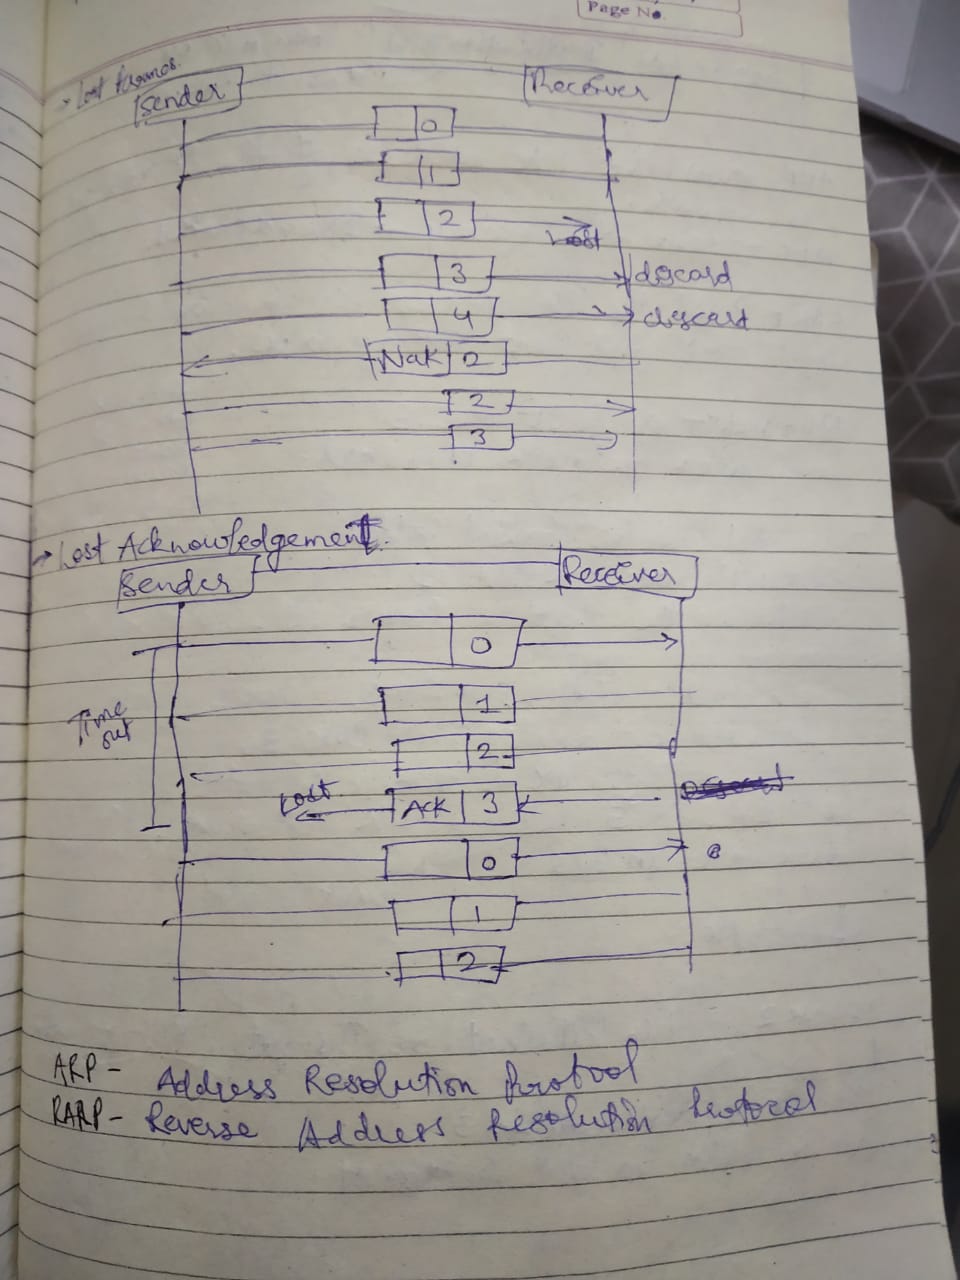 Page No.
→ Lost frames.
Sender Receiver
0
1
2
Lost
3 discard
4 discard
Nak 2
2
3
→ Lost Acknowledgement.
Sender Receiver
0
Time out
1
2
Lost Ack 3
0
1
2
ARP - Address Resolution Protocol
RARP - Reverse Address Resolution Protocol